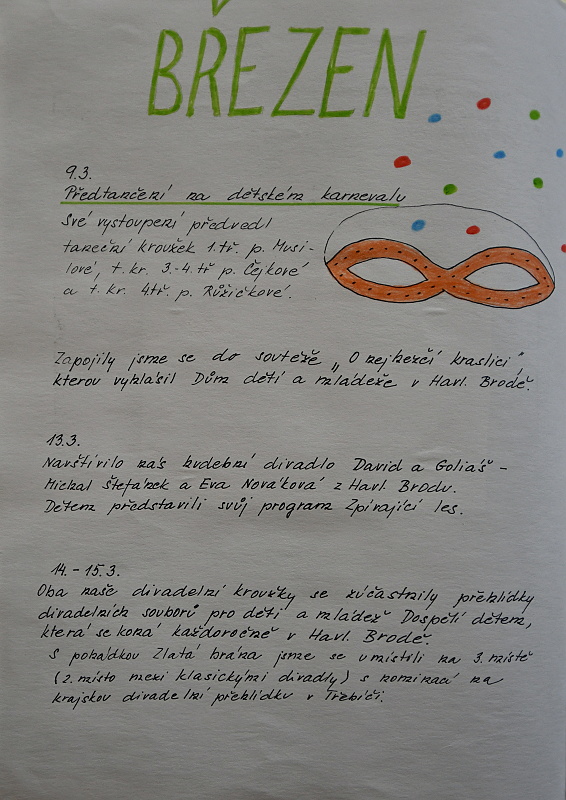 BŘEZEN
9.3.
Předtančení na dětském karnevalu
Své vystoupení předvedl
taneční kroužek 1.tř. p. Musi-
lové, t.kr. 3.-4.tř p. Čejkové
a t. kr. 4tř. p. Růžičkové.
Zapojily jsme se do soutěže „O nejhezčí kraslici"
kterou vyhlásil Dům dětí a mládeže v Havl. Brodě.
13.3.
Navštívilo nás hudební divadlo David a Goliáš -
Michal Štefánek a Eva Nováková z Havl. Brodu.
Dětem představili svůj program Zpívající les.
14. - 15.3.
Oba naše divadelní kroužky se zúčastnily přehlídky
divadelních souborů pro děti a mládež Dospělí dětem,
která se koná každoročně v Havl. Brodě.
S pohádkou Zlatá brána jsme se umístili na 3. místě
(2. místo mezi klasickými divadly) s nominací na
krajskou divadelní přehlídku v Třebíči.